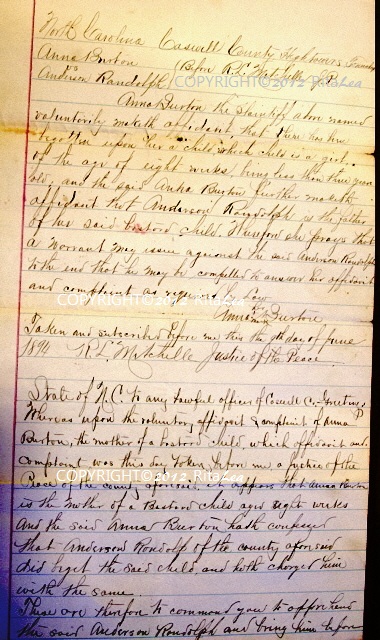 North Carolina Caswell County Hightowers Township
Anna Burton (Before R.L. Mitchelle J.P.
vs
Anderson Randolph)
COPYRIGHT©2012 RitaLea
Anna Burton the plaintiff above named
voluntarily maketh affidavit that there has been
begotten upon her a child, which child is a girl
of the age of eight weeks, being less than three years
old; and the said Anna Burton further maketh
affidavit that Anderson Randolph is the father
of her said bastord child. Therefore she prays that
a warrant may issue against the said Anderson Randolph
to the end that he may be compelled to answer her affidavit
and complaint as required by Law
COPYRIGHT©2012 RitaLea
Anna her mark Burton
Taken and subscribed before me this the day of June
1894 R.L. Mitchelle Justice of the Peace
State of N.C. to any lawful officer of Caswell Co. Greeting
Whereas upon the voluntary affidavit & complaint of Anna
Burton, the mother of a bastord child, which affidavit and
complaint was this day taken before me a justice of the
COPYRIGHT©2012 RitaLea
Peace of the county aforesaid, it appears that Anna Burton
is the mother of a Bastord child aged eight weeks
And the said Anna Burton hath confessed
that Anderson Randolf of the county aforesaid
did beget the said child, and hath charged him
with the same.
These are therefore to command you to apprehend
the said Anderson Randolph and bring him before